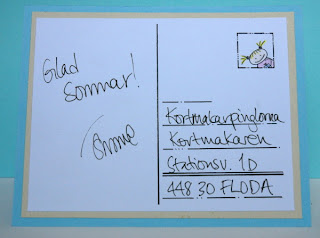 Glad
Sommar!
Kortmakarpinglorna
Kortmakaren
Stationsv. 10
448 30 FLODA